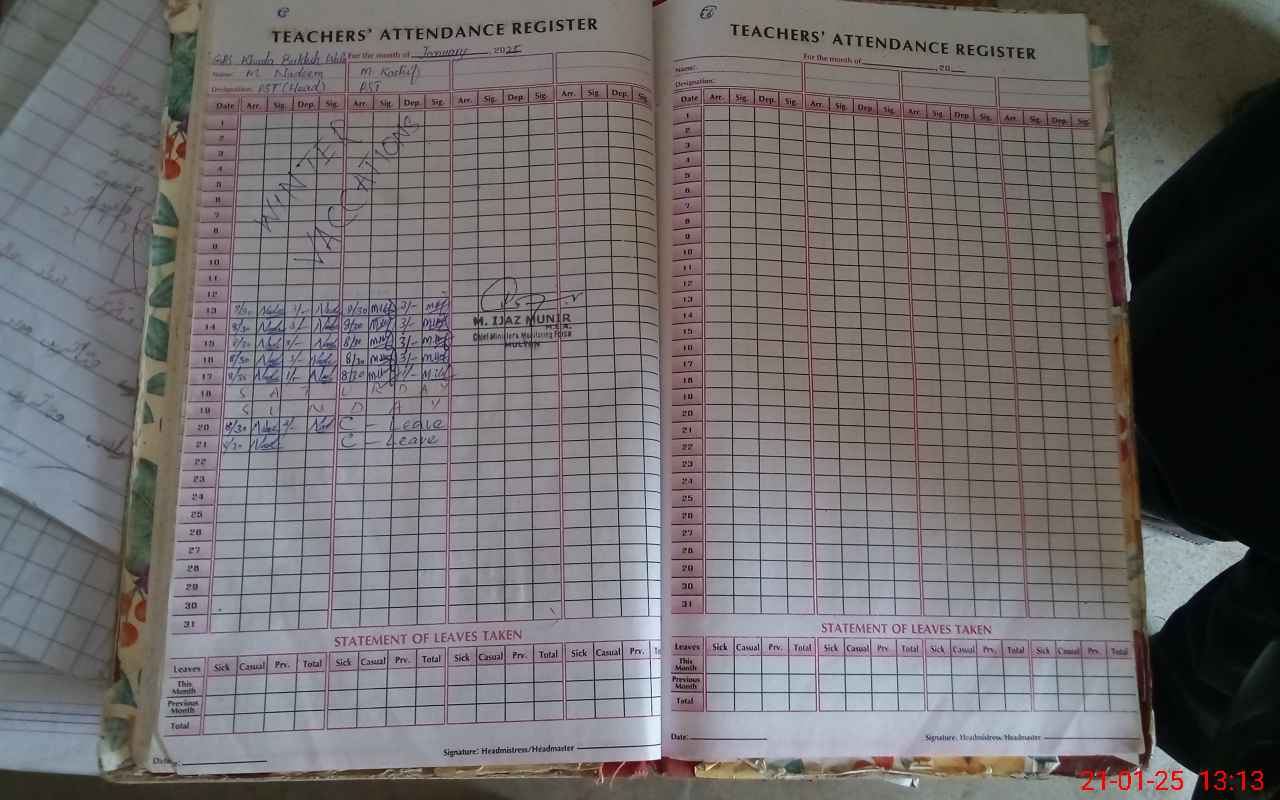 TEACHERS' ATTENDANCE REGISTER
GPS Khuda Bukhsh For the month of January, 2025
Name: M. Nadeem M. Kashif
Designation: PST (Head) PST
Date Arr. Sig. Dep. Sig. Arr. Sig. Dep. Sig. Arr. Sig. Dep. Sig. Arr. Sig. Dep. Sig.
1
2
3
4
5
6
7
8
9
10
11
12
WINTER
VACCATIONS
13 8/30 3/-
14 8/30 3/- 8/30 3/-
15 8/30 3/- 8/30 3/-
16 8/30 3/- 8/30 3/-
17 8/30 8/30
18 S A T U R D A Y
19 S U N D A Y
20 8/30 C - Leave
21 8/30 C - Leave
M. IJAZ MUNIR
M.E.A.
Chief Minister's Monitoring Force
MULTAN
22
23
24
25
26
27
28
29
30
31
STATEMENT OF LEAVES TAKEN
Leaves Sick Casual Prv. Total Sick Casual Prv. Total Sick Casual Prv. Total Sick Casual Prv.
This Month
Previous Month
Total
Date: Signature: Headmistress/Headmaster
TEACHERS' ATTENDANCE REGISTER
For the month of 20
Name:
Designation:
Date Arr. Sig. Dep. Sig. Arr. Sig. Dep. Sig. Arr. Sig. Dep. Sig. Arr. Sig. Dep. Sig.
1
2
3
4
5
6
7
8
9
10
11
12
13
14
15
16
17
18
19
20
21
22
23
24
25
26
27
28
29
30
31
STATEMENT OF LEAVES TAKEN
Leaves Sick Casual Prv. Total Sick Casual Prv. Total Sick Casual Prv. Total Sick Casual Prv. Total
This Month
Previous Month
Total
Date: Signature: Headmistress/Headmaster
21-01-25 13:13